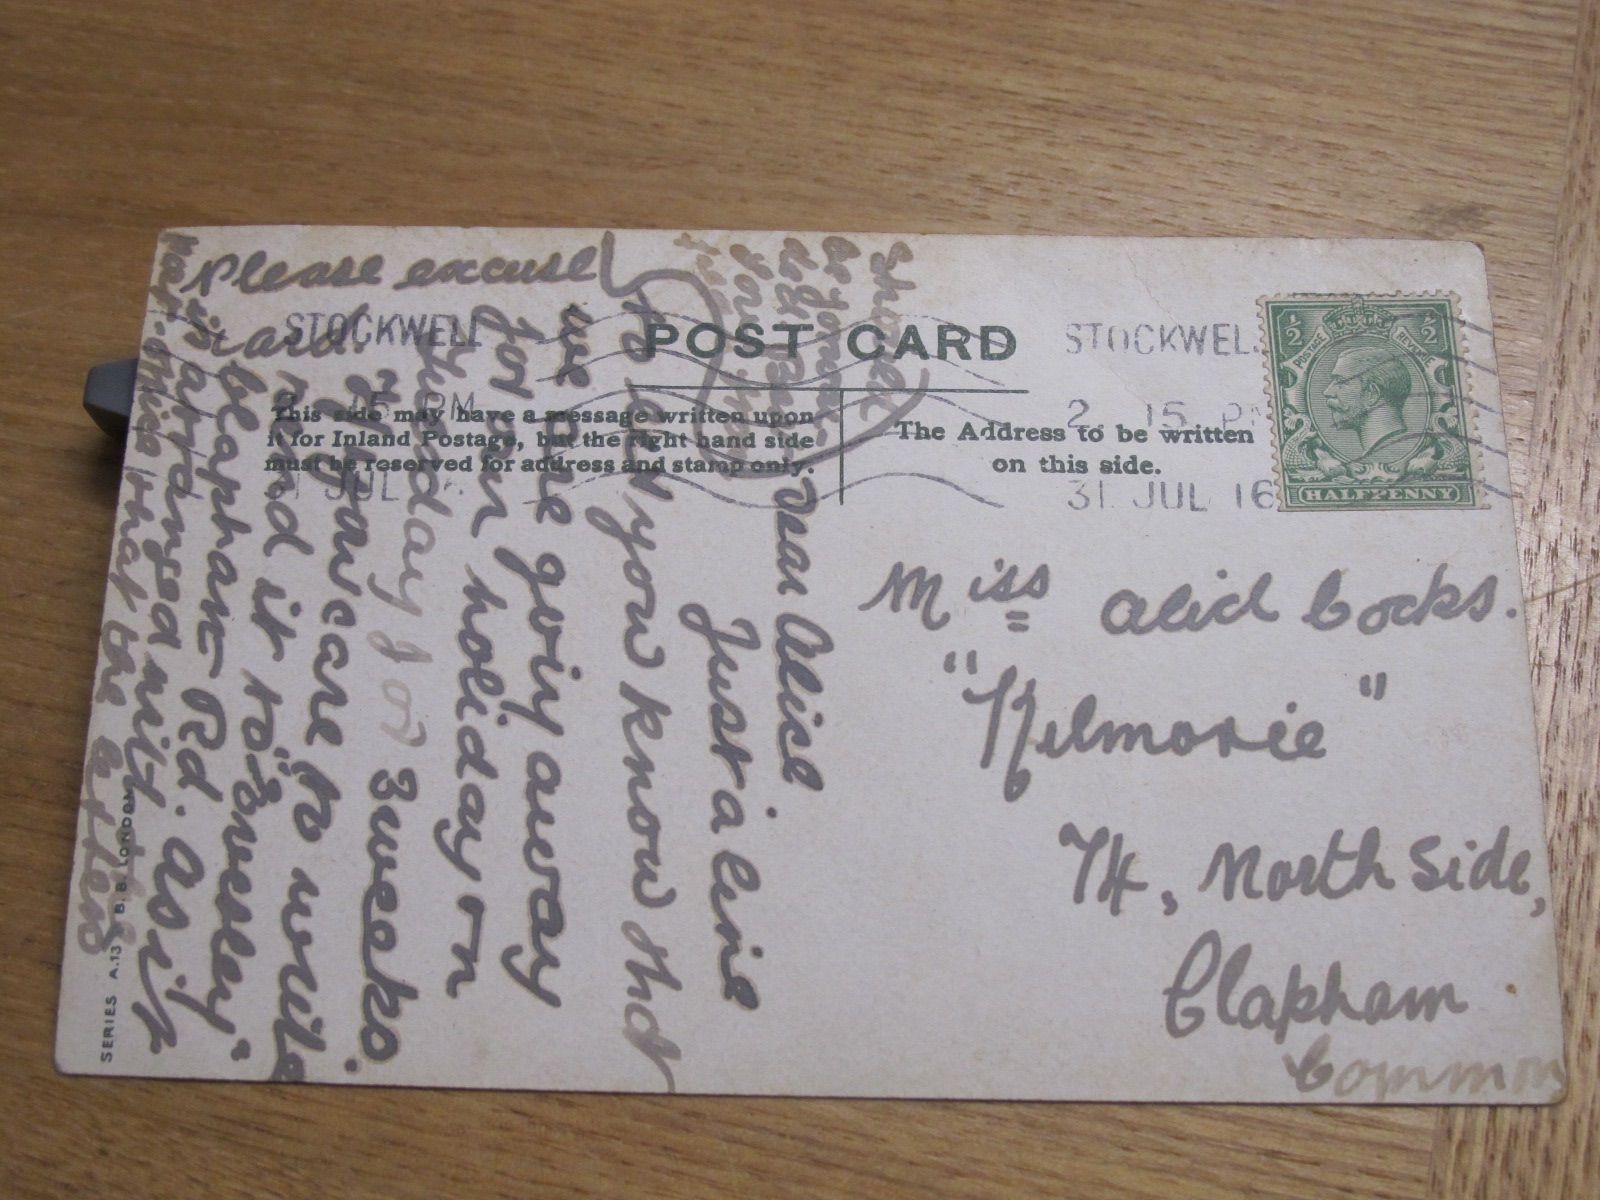 Please excuse
card.
POST CARD
This side may have a message written upon
it for Inland Postage, but the right hand side
must be reserved for address and stamp only.
The Address to be written
on this side.
STOCKWELL
2 15 PM
31 JUL 16
STOCKWEL
2 15 P
31 JUL 16
POSTAGE REVENUE
1/2 1/2
HALFPENNY
Miss Alice Cocks.
"Kilmorie"
74, North Side,
Clapham
Common
Dear Alice
Just a line
to let you know that
we are going away
for our holiday on
Thursday for
3 weeks.
If you care to write
send it to "Bowesley"
Clapham Rd. as it
is arranged with
post-office that the letters
should
be
SERIES A.13 B.B. LONDON